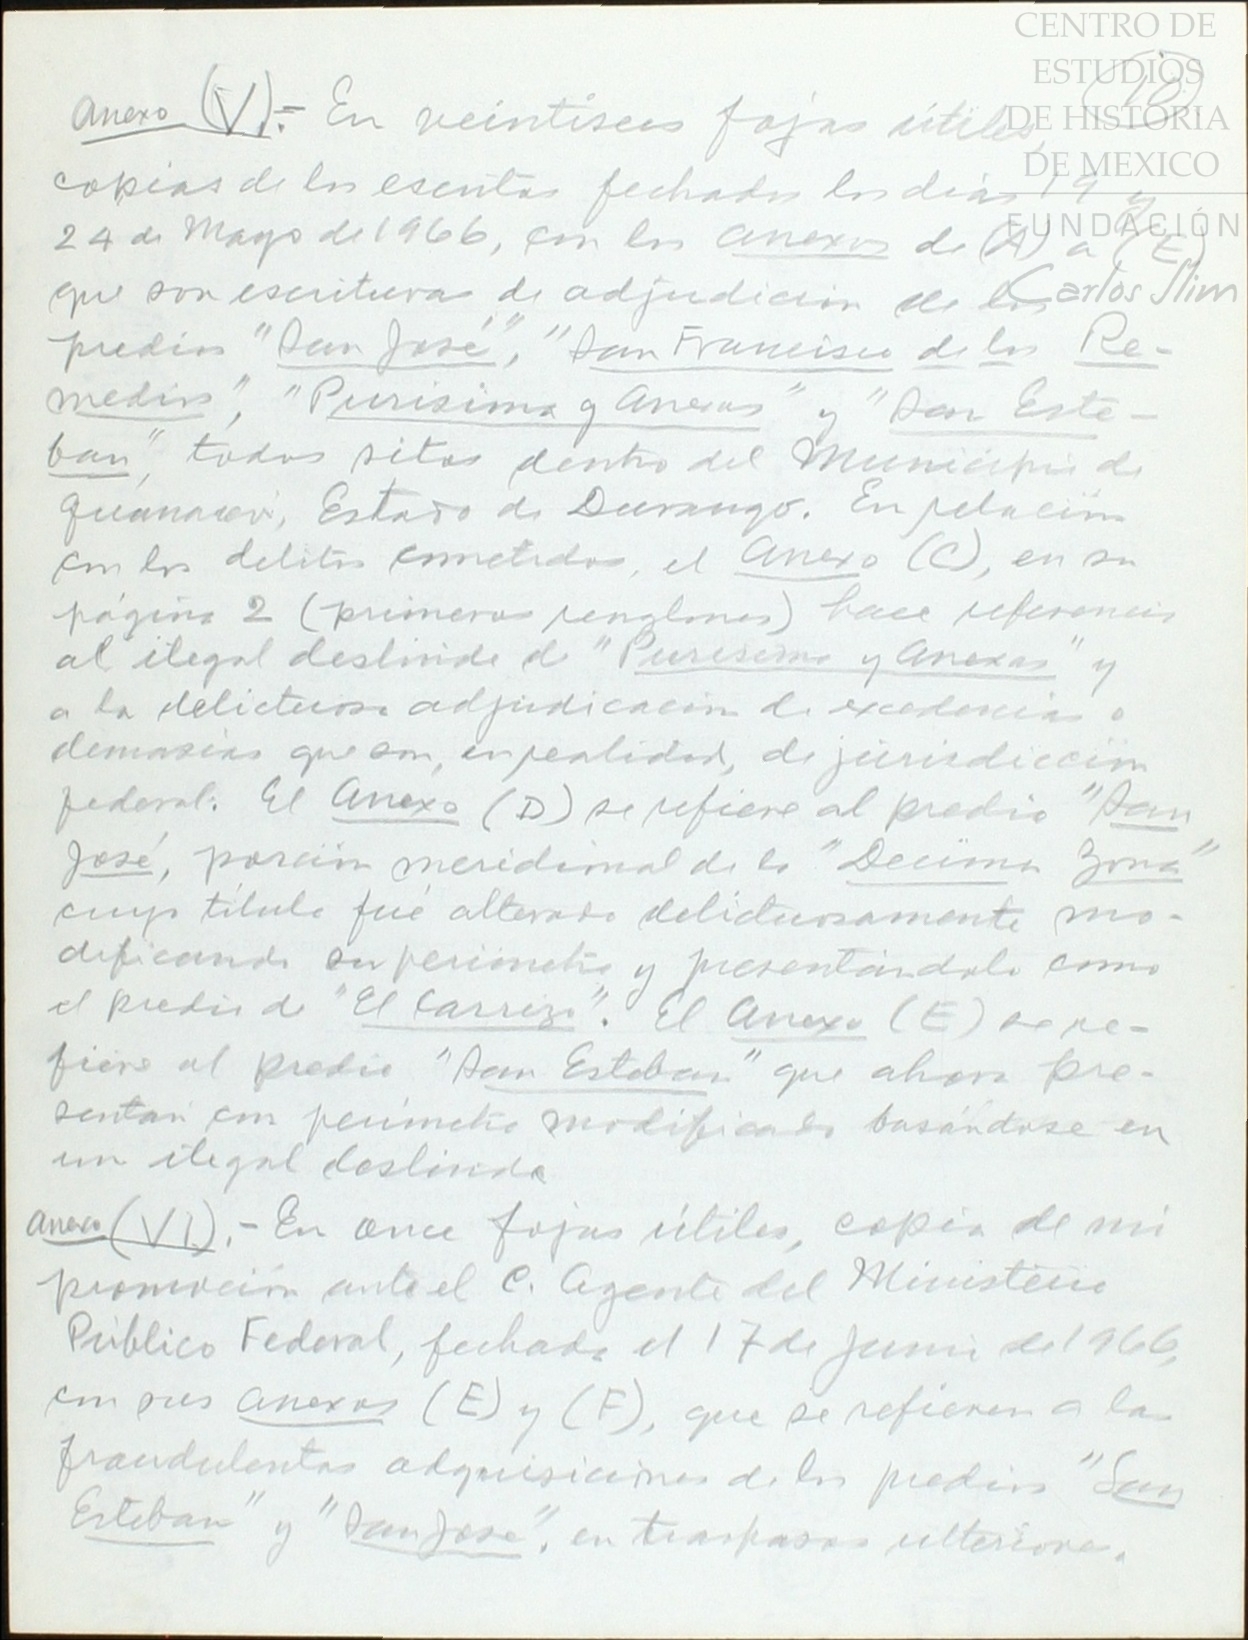 CENTRO DE
ESTUDIOS
DE HISTORIA
DE MEXICO
FUNDACIÓN
Carlos Slim
Anexo (V).- En veintiseis fojas útiles,
copias de los escritos fechados los días 19 y
24 de Mayo de 1966, con los anexos de (A) a (E)
que son escrituras de adjudición de los
predios "San José", "San Francisco de los Re-
medios", "Purísima y Anexas" y "San Este-
ban", todos sitos dentro del Municipio de
Guanaceví, Estado de Durango. En relación
con los delitos cometidos, el Anexo (C), en su
página 2 (primeros renglones) hace referencia
al ilegal deslinde de "Purísima y Anexas" y
a la delictuosa adjudicación de excedencias o
demasías que son, en realidad, de jurisdicción
federal. El Anexo (D) se refiere al predio "San
José, porción meridional de la "Decima Zona"
cuyo título fué alterado delictuosamente mo-
dificando su perímetro y presentándolo como
el predio de "El Carrizo". El Anexo (E) se re-
fiere al predio "San Esteban" que ahora pre-
sentan con perímetro modificado basándose en
un ilegal deslinde
Anexo (VI).- En once fojas útiles, copia de mi
promoción ante el C. Agente del Ministerio
Público Federal, fechada el 17 de Junio de 1966,
con sus anexos (E) y (F), que se refieren a las
fraudulentas adquisiciones de los predios "San
Esteban" y "San José", en traspasos ulteriores.